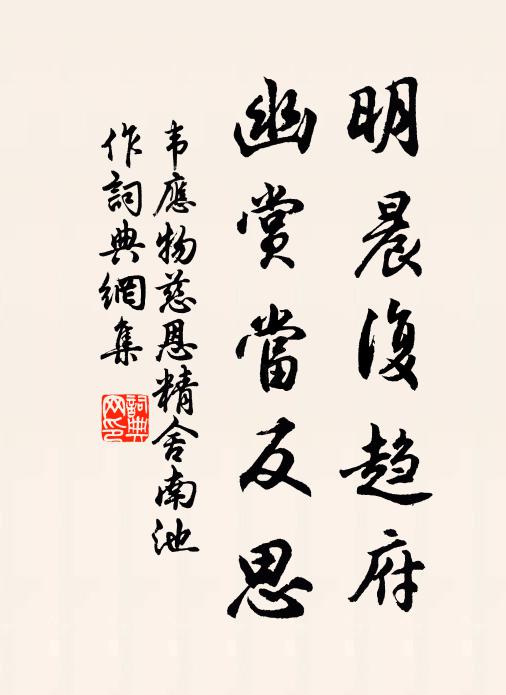 明晨復趋府
幽賞當反思
韦應物慈恩精舍南池
作詞典網集
詞典
网印